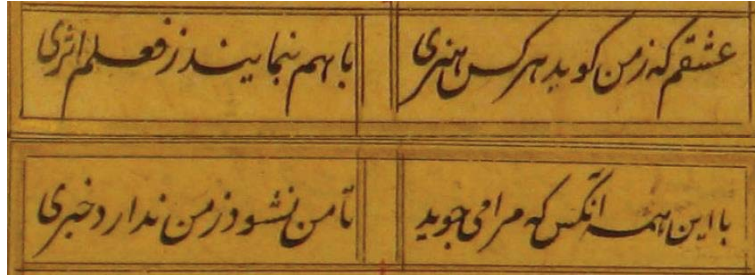 عشقم که ز من کوید هر کس هنری
با هم ننمایند ز فعلم اثری
با این همه آنکس که مرا می جوید
تا من نشود ز من ندارد خبری